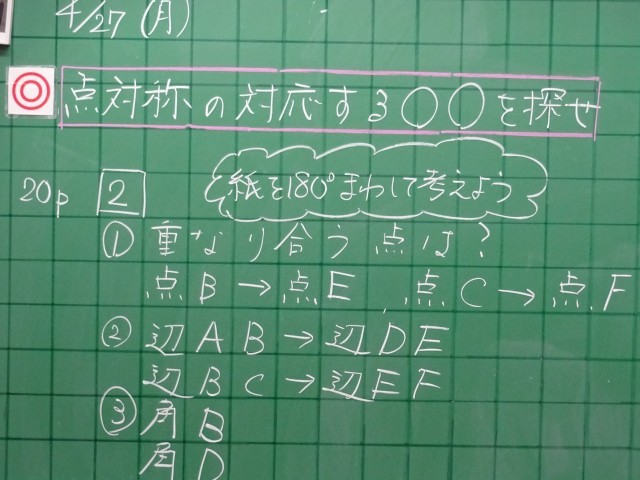 4/27 (月)
点対称の対応する〇〇を探せ
紙を180°まわして考えよう
20p 2
① 重なり合う点は?
点B→点E 点C→点F
② 辺AB→辺DE
辺BC→辺EF
③ 角B
角D